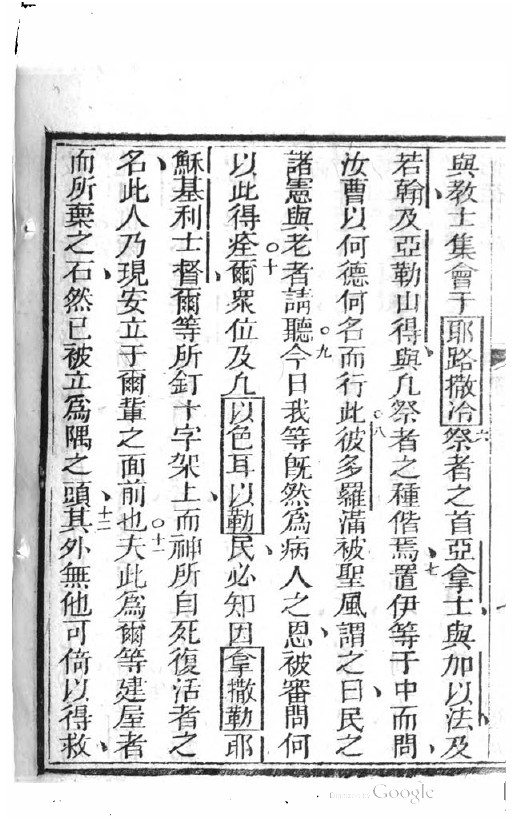 與教士集會于耶路撒冷六祭者之首亞拿士與加以法及
若翰及亞勒山得與凡祭者之種偕焉七置伊等于中而問
汝曹以何德何名而行此八彼多羅滿被聖風謂之曰民之
諸憲與老者請聽九今日我等既然為病人之恩被審問何
以此得痊十爾眾位及凡以色耳以勒民必知因拿撒勒耶
穌基利士督爾等所釘十字架上而神所自死復活者之
名此人乃現安立于爾輩之面前也十一夫此為爾等建屋者
而所棄之石然已被立為隅之頭十二其外無他可倚以得救
Digitized by Google